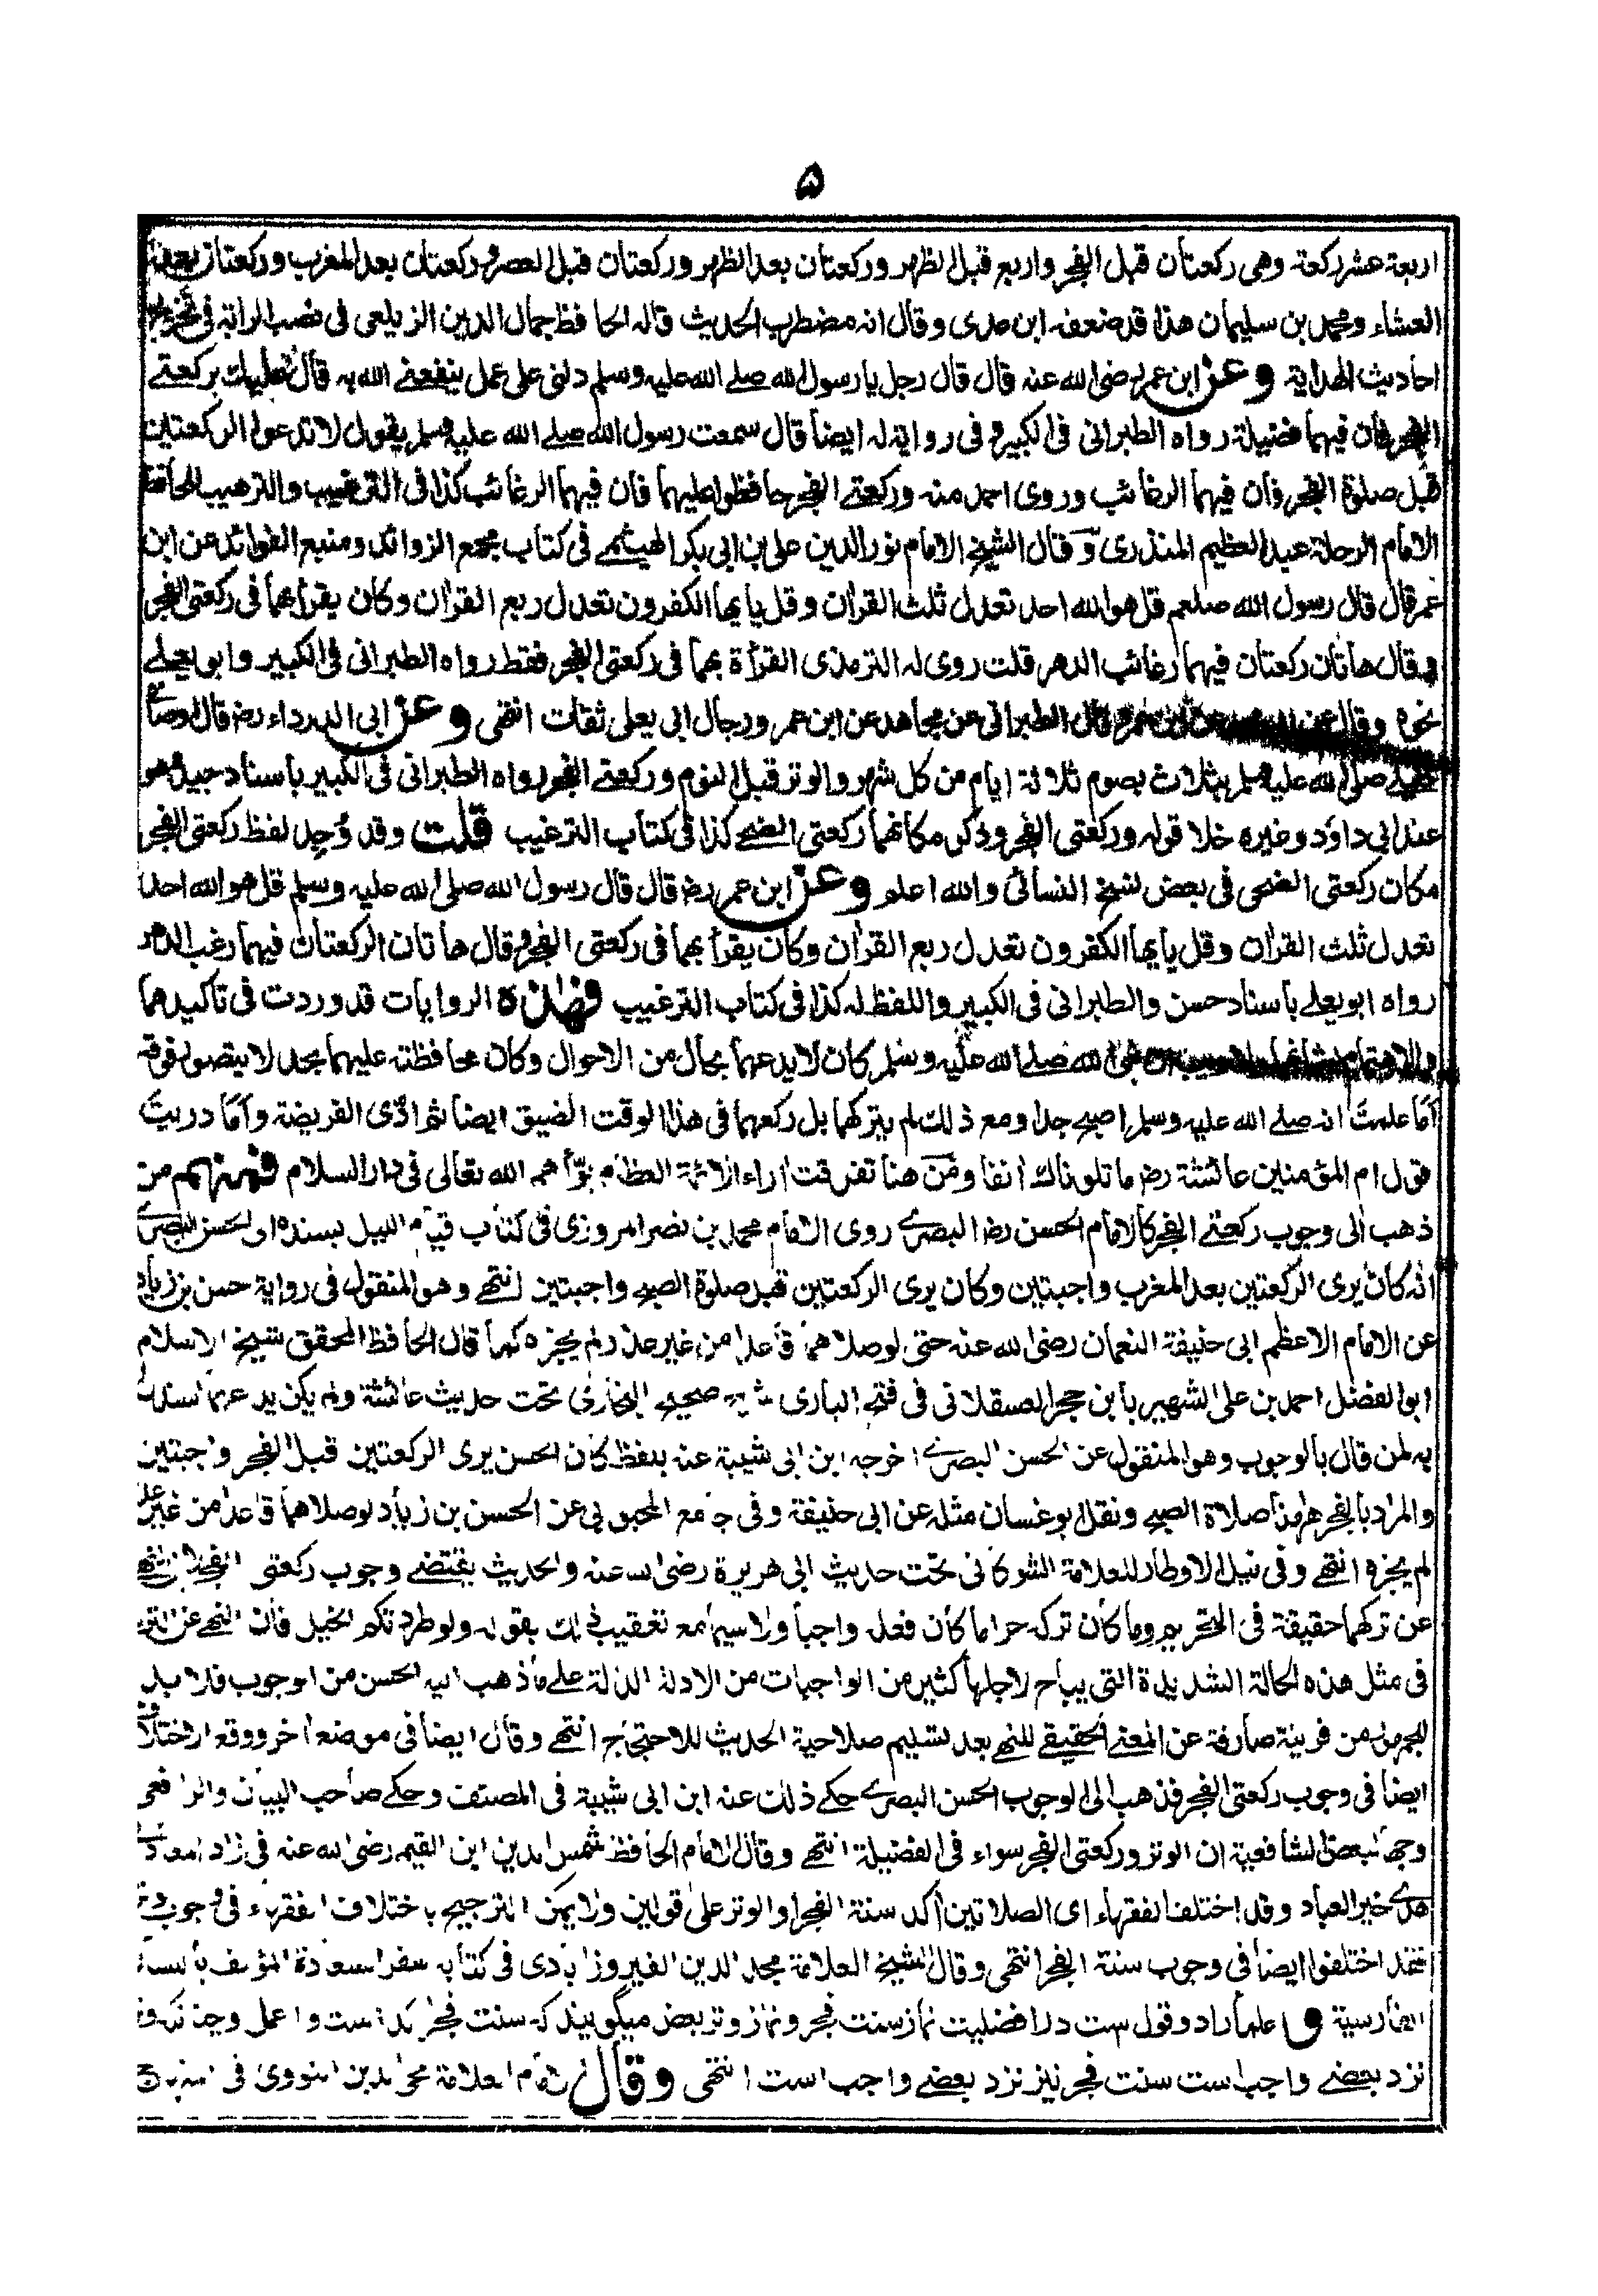 ۵
اربعة عشر ركعة وهى ركعتان قبل الفجر واربع قبل الظهر وركعتان بعد الظهر وركعتان قبل العصر وركعتان بعد المغرب وركعتان بعد
العشاء ومحمد بن سليمان هذا قد ضعفه ابن عدى وقال انه مضطرب الحديث قاله الحافظ جمال الدين الزيلعى فى نصب الراية فى تخريج
احاديث الهداية وعن ابن عمر رضى الله عنه قال قال رجل يا رسول الله صلے الله عليه وسلم دلنى على عمل ينفعنے الله به قال عليك بركعتے
الفجر فان فيهما فضيلة رواه الطبرانى فى الكبير وفى رواية له ايضا قال سمعت رسول الله صلے الله عليه وسلم يقول لا تدعوا الركعتين
قبل صلوة الفجر فان فيهما الرغائب وروى احمد منه وركعتے الفجر حافظوا عليهما فان فيهما الرغائب كذا فى الترغيب والترهيب للحافظ
الامام الرحلة عبد العظيم المنذرى وقال الشيخ الامام نور الدين على بن ابى بكر الهيثمے فى كتاب مجمع الزوائد ومنبع الفوائد عن ابن
عمر قال قال رسول الله صلعم قل هو الله احد تعدل ثلث القران وقل يايها الكفرون تعدل ربع القران وكان يقرأ بهما فى ركعتى الفجر
وقال هاتان ركعتان فيهما رغائب الدهر قلت روى له الترمذى القرأة بهما فى ركعتى الفجر فقط رواه الطبرانى فى الكبير وابو يعلے
نحوه وقال عن وقال الطبرانى عن مجاهد عن ابن عمر ورجال ابى يعلى ثقات انتهى وعن ابى الدرداء رض قال اوصانے
خليلے صلى الله عليه وسلم بثلاث بصوم ثلاثة ايام من كل شهر والوتر قبل النوم وركعتے الفجر رواه الطبرانى فى الكبير باسناد جيد وهو
عند ابى داود وغيره خلا قوله وركعتى الفجر وذكر مكانهما ركعتى الضحے كذا فى كتاب الترغيب قلت وقد وُجد لفظ ركعتى الفجر
مكان ركعتى الضحى فى بعض نسخ النسائى والله اعلم وعن ابن عمر رض قال قال رسول الله صلى الله عليه وسلم قل هو الله احد
تعدل ثلث القران وقل يايها الكفرون تعدل ربع القران وكان يقرأ بهما فى ركعتى الفجر وقال هاتان الركعتان فيهما رغب الدهر
رواه ابو يعلے باسناد حسن والطبرانى فى الكبير واللفظ له كذا فى كتاب الترغيب فهٰذه الروايات قد وردت فى تاكيدهما
والاهتمام بشانهما النبى الله صلے الله عليه وسلم كان لا يدعهما بحال من الاحوال وكان محافظته عليهما بحد لا يتصور فوقه
اما علمت انه صلے الله عليه وسلم اصبح جدا ومع ذلك لم يتركهما بل ركعهما فى هذا الوقت الضيق ايضا ثم ادّى الفريضة واما دريت
قول ام المؤمنين عائشة رض ما تلوناك انفا ومن هنا تفرقت اراء الائمة العظام بوّأهم الله تعالى فى دار السلام فمنهم من
ذهب الى وجوب ركعتے الفجر كالامام الحسن رض البصرے روى الامام محمد بن نصر المروزى فى كتاب قيام الليل بسنده الى الحسن البصرے
انه كان يرى الركعتين بعد المغرب واجبتين وكان يرى الركعتين قبل صلوة الصبح واجبتين انتهے وهو المنقول فى رواية حسن بن زياد
عن الامام الاعظم ابى حنيفة النعمان رضى الله عنه حتى لو صلاهما قاعدا من غير عذر لم يجزه كما قال الحافظ المحقق شيخ الاسلام
ابو الفضل احمد بن على الشهير بابن حجر العسقلانى فى فتح البارى شرح صحيح البخارى تحت حديث عائشة ولم يكن يدعهما استدل
به لمن قال بالوجوب وهو المنقول عن الحسن البصرے اخرجه ابن ابى شيبة عنه بلفظ كان الحسن يرى الركعتين قبل الفجر واجبتين
والمراد بالفجر هنا صلاة الصبح ونقل ابو غسان مثله عن ابى حنيفة وفى جامع المحبوبى عن الحسن بن زياد لو صلاهما قاعدا من غير عذر
لم يجزه انتهے وفى نيل الاوطار للعلامة الشوكانى تحت حديث ابى هريرة رضى الله عنه والحديث يقتضے وجوب ركعتى الفجر لان النهے
عن تركهما حقيقة فى التحريم وما كان تركه حراما كان فعله واجبا ولا سيما مع تعقيب ذلك بقوله ولو طردتكم الخيل فان النهے عن الترك
فى مثل هذه الحالة الشديدة التى يباح لاجلها كثير من الواجبات من الادلة الدالة علے ما ذهب اليه الحسن من الوجوب فلا بد
للجمهور من قرينة صارفة عن المعنے الحقيقے للنهے بعد تسليم صلاحية الحديث للاحتجاج انتهے وقال ايضا فى موضع اخر ووقع الاختلاف
ايضا فى وجوب ركعتى الفجر فذهب الى الوجوب الحسن البصرے حكے ذلك عنه ابن ابى شيبة فى المصنف وحكے صاحب البيان والرافعى
وجها لبعض الشافعية ان الوتر وركعتى الفجر سواء فى الفضيلة انتهے وقال الامام الحافظ شمس الدين ابن القيم رضى الله عنه فى زاد المعاد
هدے خير العباد وقد اختلف الفقهاء اى الصلاتين اكد سنة الفجر او الوتر على قولين ولا يمكن الترجيح باختلاف الفقهاء فى وجوب
فقد اختلفوا ايضا فى وجوب سنة الفجر انتهى وقال الشيخ العلامة مجد الدين الفيروزابادى فى كتابه سفر السعادة المؤلف
الفارسية و علما را دو قول ست در افضليت نماز سنت فجر و نماز وتر بعض ميگويند كه سنت فجر
نزد بعضے واجب است سنت فجر نيز نزد بعضے واجب است انتهى وقال الامام العلامة محى الدين النووى فى